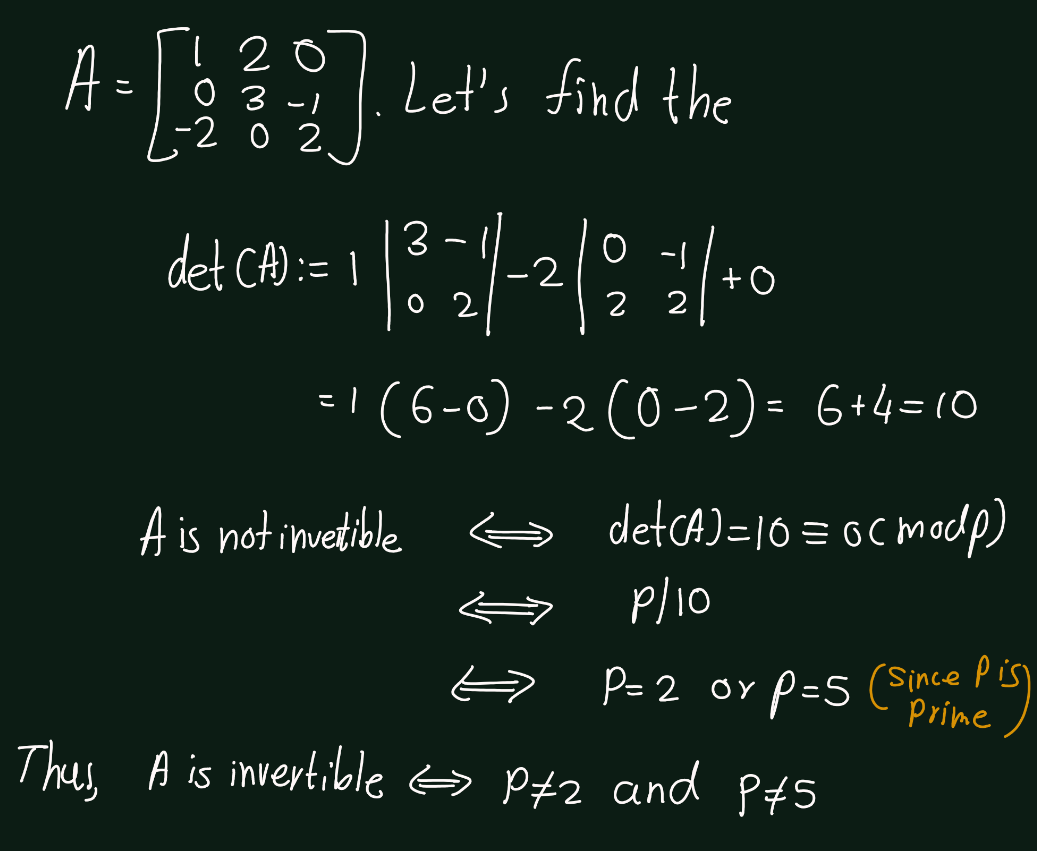 A = [1 2 0; 0 3 -1; -2 0 2]. Let's find the
det(A) := 1 |3 -1; 0 2| - 2 |0 -1; 2 2| + 0
= 1 (6-0) - 2 (0-2) = 6+4 = 10
A is not invertible ⟺ det(A) = 10 ≡ 0 (mod p)
⟺ p/10
⟺ p = 2 or p = 5 (since p is prime)
Thus, A is invertible ⟺ p ≠ 2 and p ≠ 5